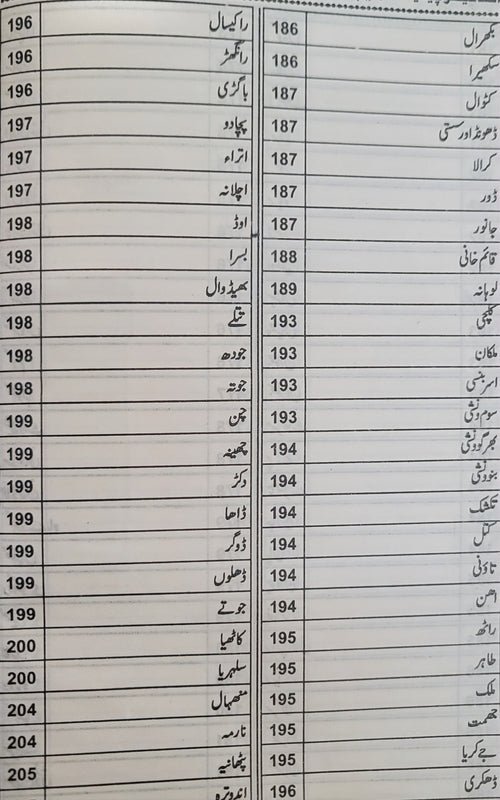 بکھرال 186
سکھیرا 186
کٹوال 187
ڈھونڈ اور ستی 187
کرالا 187
ڈور 187
جانور 187
قائم خانی 188
لوہانہ 189
کلچی 193
ملکان 193
اسر بنسی 193
سوم ونشی 193
بھرگوونشی 194
بنو ونشی 194
تکشک 194
کنل 194
تاؤنی 194
اھن 194
راٹھ 195
طاہر 195
ملک 195
جھمت 195
جے کریا 195
ڈھکری 196
راکیسال 196
رانگھڑ 196
باگڑی 196
پچادو 197
اتراء 197
اچلانہ 197
اوڈ 198
بسرا 198
بھیڈوال 198
تتلے 198
جودھ 198
جوتہ 198
چن 199
چھینہ 199
دکڑ 199
ڈاھا 199
ڈوگر 199
ڈھلوں 199
جوتے 199
کاٹھیا 200
سلہریا 200
منھہال 204
نارمہ 204
پٹھانیہ 205
اندوترہ